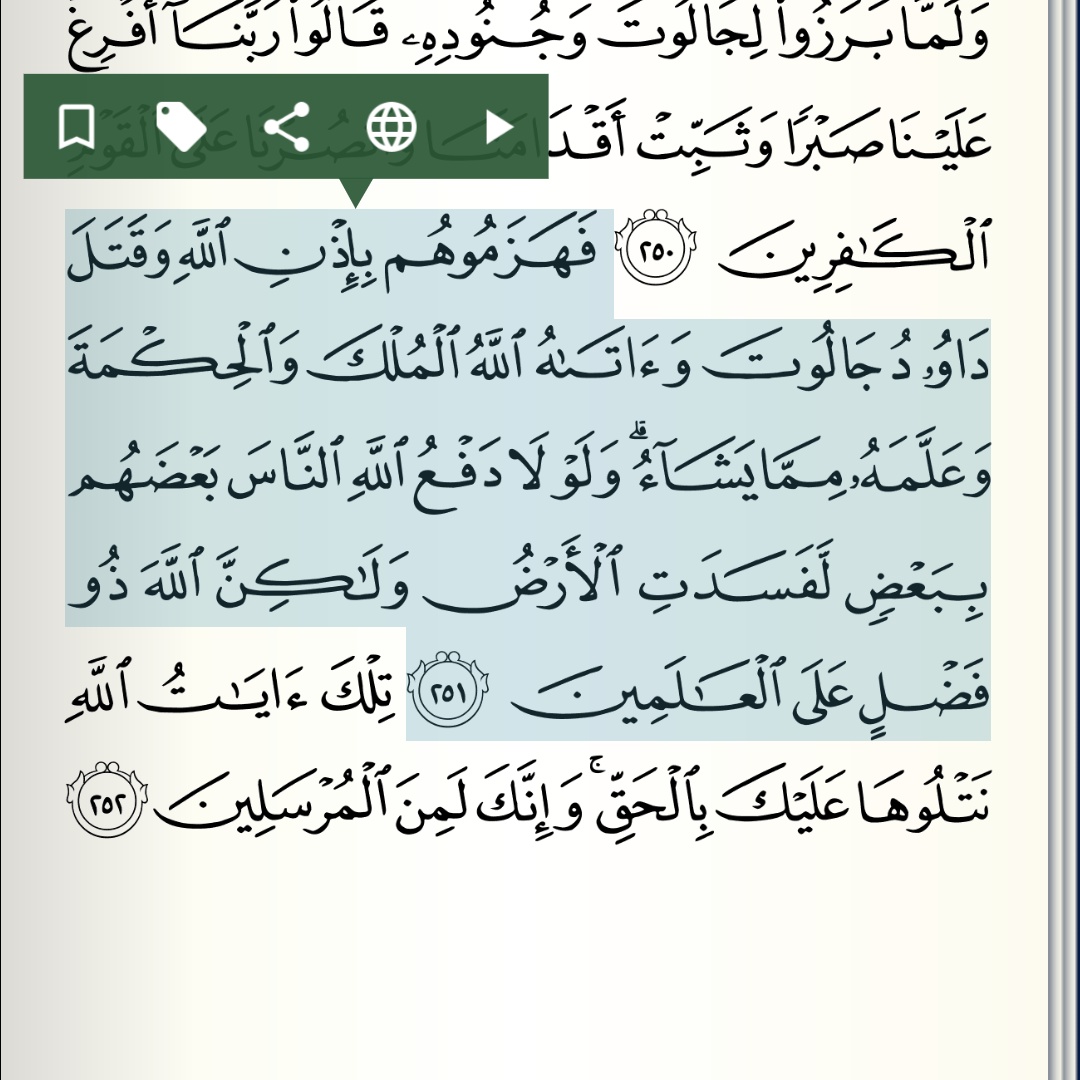 وَلَمَّا بَرَزُوا۟ لِجَالُوتَ وَجُنُودِهِۦ قَالُوا۟ رَبَّنَآ أَفْرِغْ
عَلَيْنَا صَبْرًا وَثَبِّتْ أَقْدَامَنَا وَٱنصُرْنَا عَلَى ٱلْقَوْمِ
ٱلْكَٰفِرِينَ ٢٥٠ فَهَزَمُوهُم بِإِذْنِ ٱللَّهِ وَقَتَلَ
دَاوُۥدُ جَالُوتَ وَءَاتَىٰهُ ٱللَّهُ ٱلْمُلْكَ وَٱلْحِكْمَةَ
وَعَلَّمَهُۥ مِمَّا يَشَآءُ ۗ وَلَوْلَا دَفْعُ ٱللَّهِ ٱلنَّاسَ بَعْضَهُم
بِبَعْضٍ لَّفَسَدَتِ ٱلْأَرْضُ وَلَٰكِنَّ ٱللَّهَ ذُو
فَضْلٍ عَلَى ٱلْعَٰلَمِينَ ٢٥١ تِلْكَ ءَايَٰتُ ٱللَّهِ
نَتْلُوهَا عَلَيْكَ بِٱلْحَقِّ ۚ وَإِنَّكَ لَمِنَ ٱلْمُرْسَلِينَ ٢٥٢